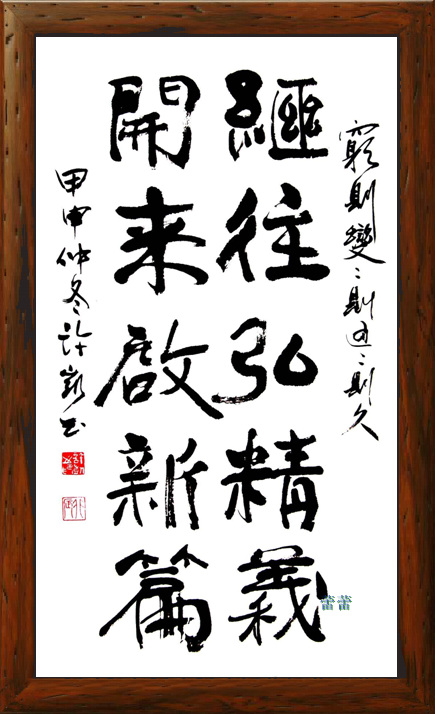 窮則變〻則通〻則久
繼往弘精義
開来啟新篇
甲申仲冬許书
蕾蕾